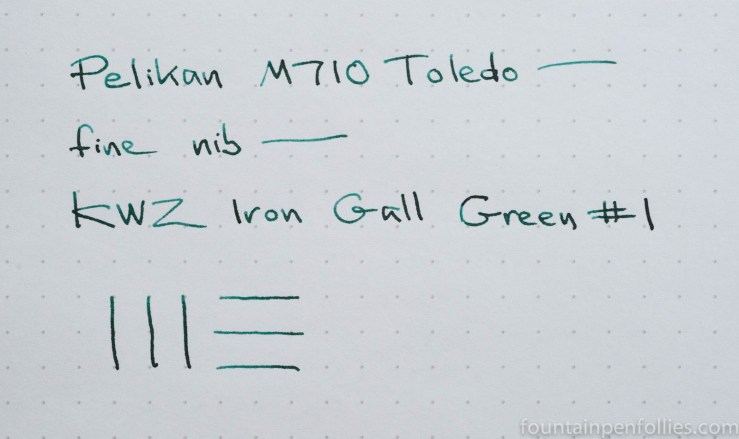 Pelikan M710 Toledo —
fine nib —
KWZ Iron Gall Green #1
fountainpenfollies.com